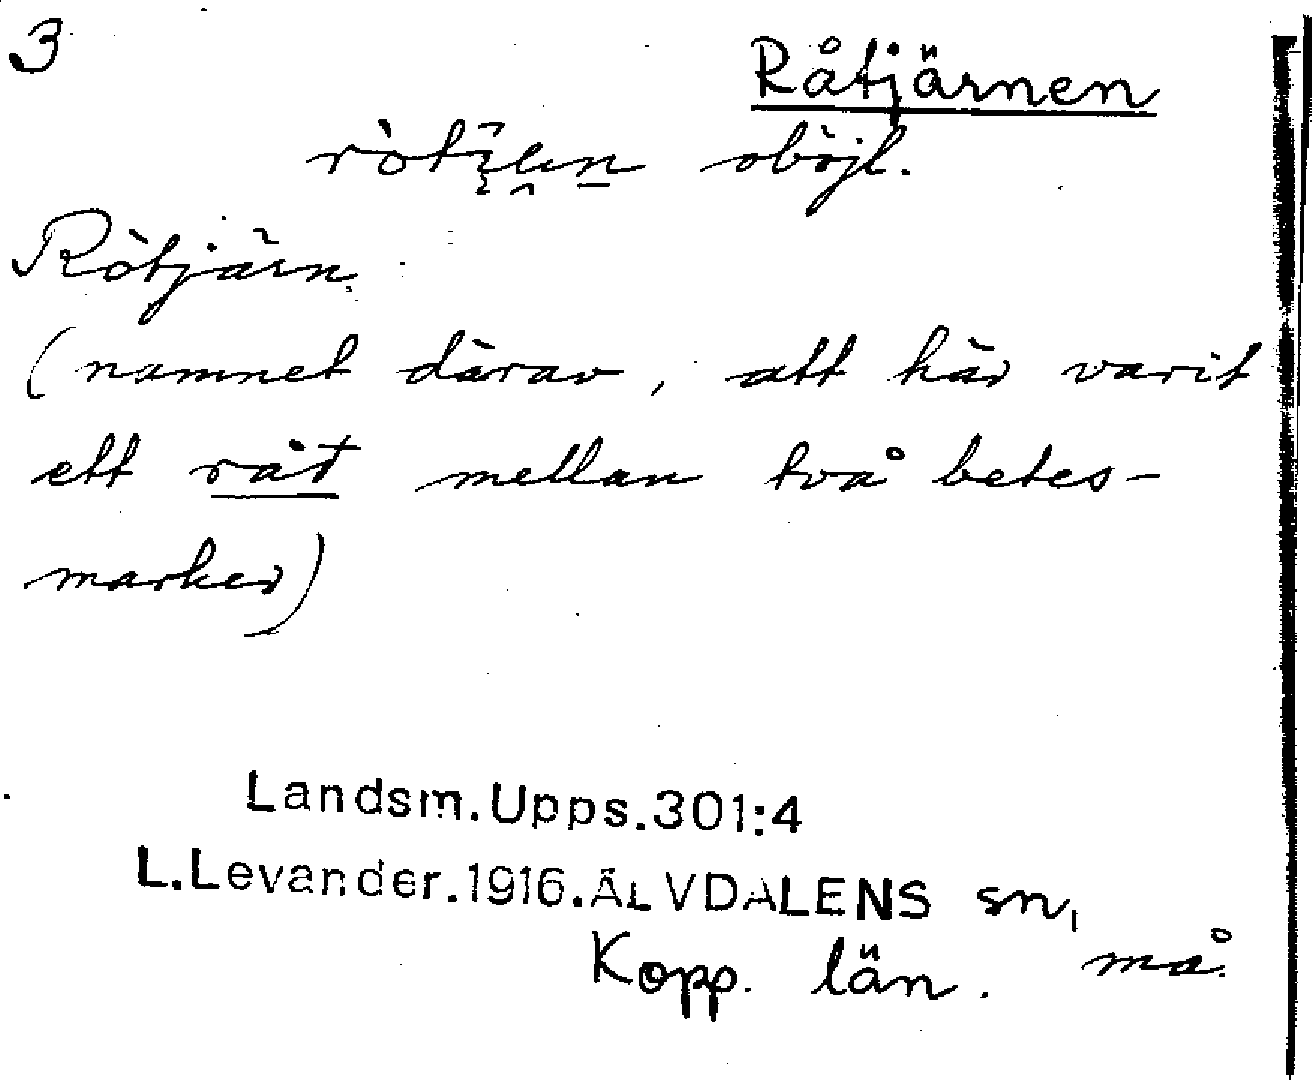 3
Råtjärnen
oböjl.
Ròtjärn.
(namnet därav, att här varit
ett råt mellan två betes-
marker)
Landsm.Upps.301:4
L.Levander.1916.ÄLVDALENS sn,
Kopp. län. må.